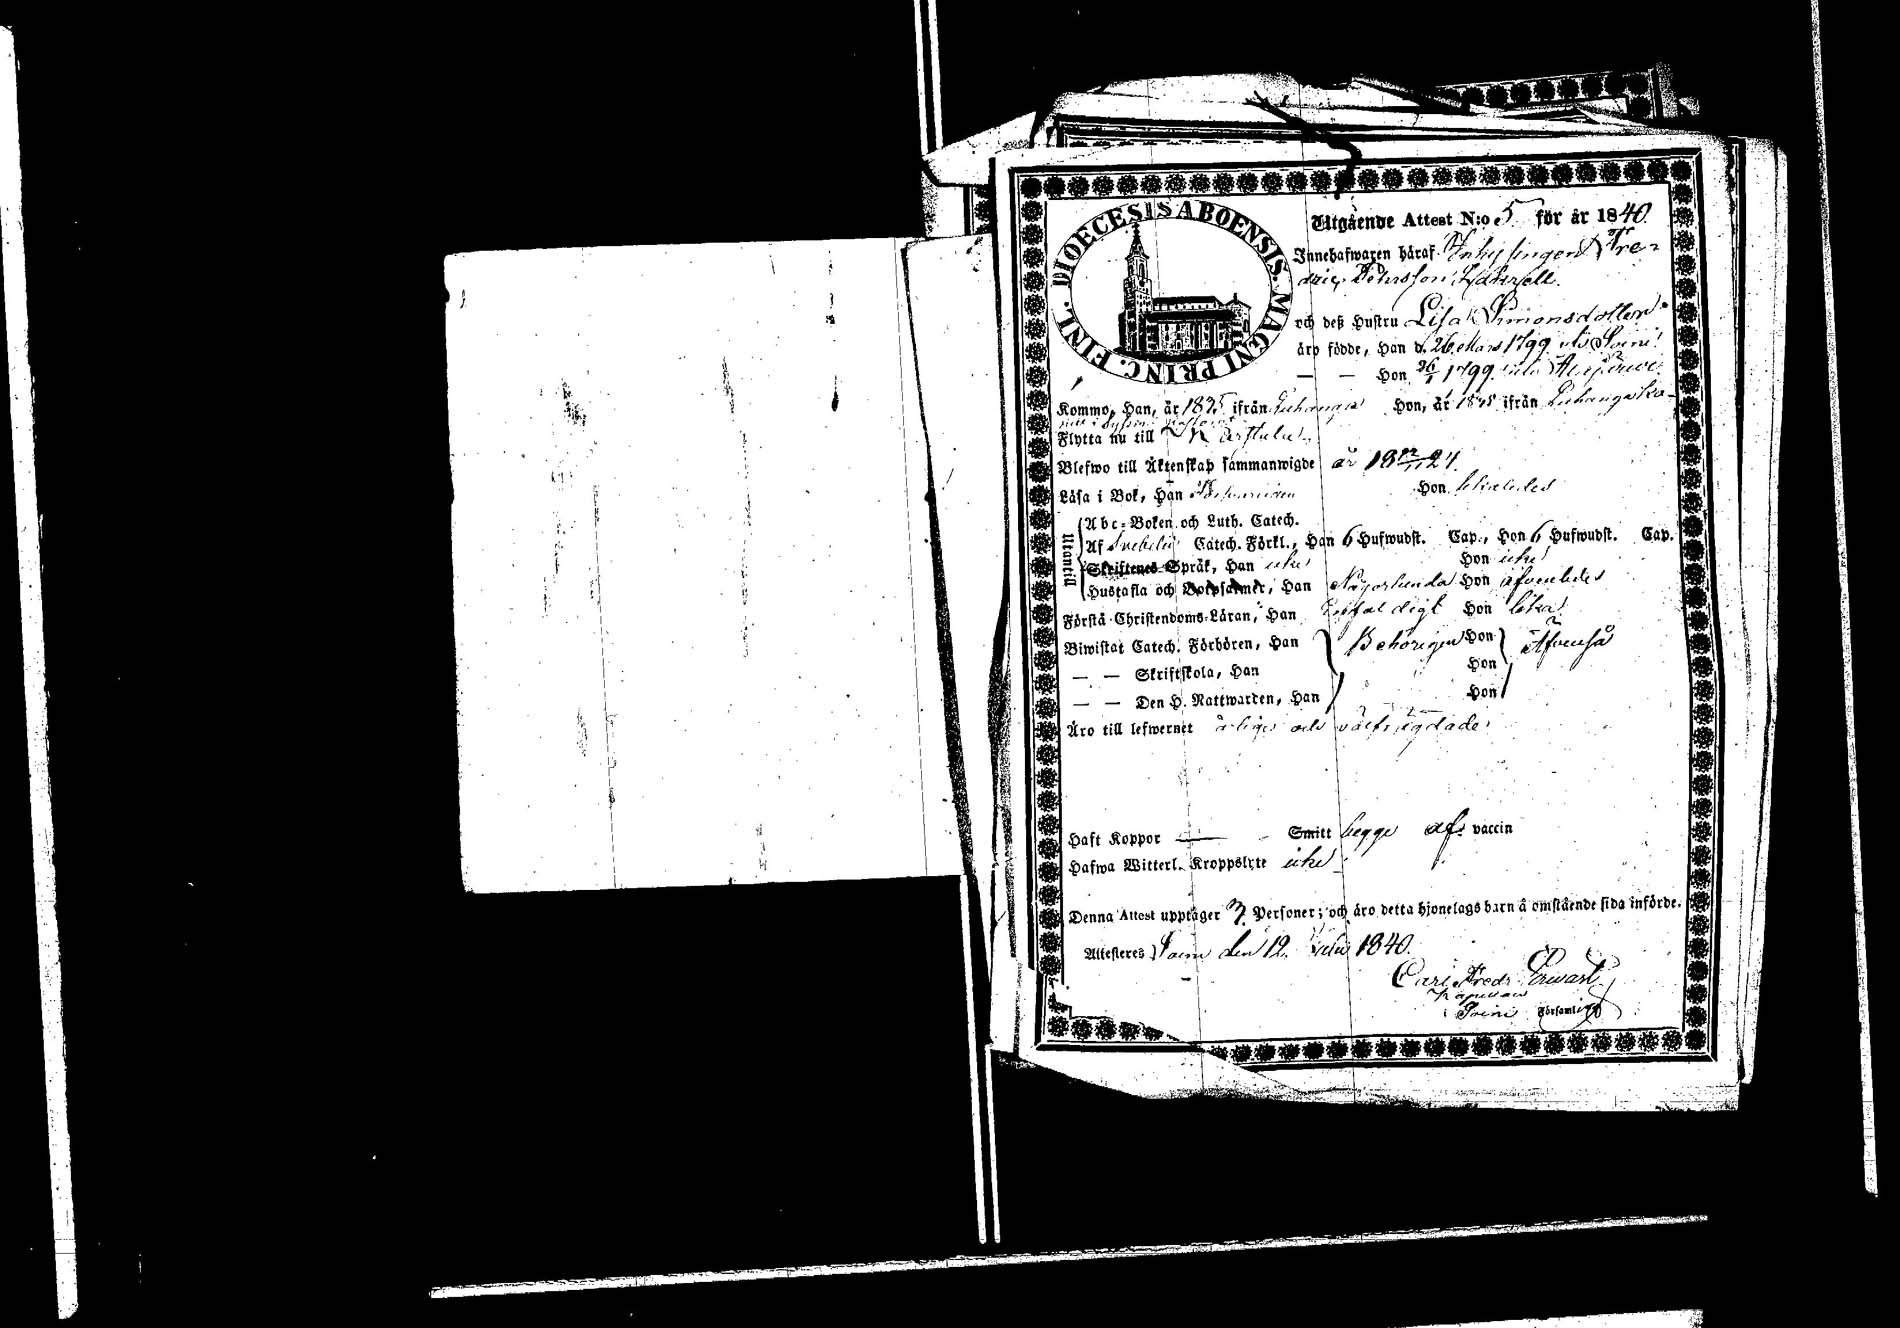 DIOECESIS ABOENSIS. MAGNI PRINC. FINL.
Utgående Attest N:o 5 för år 1840.
Innehafwaren häraf Inhysingen Fre-
dric Pehrsson
och deß Hustru Lisa Simonsdotter
äro födde, Han d. 26 Mars 1799 Soini
— — Hon 26/1 1799
Kommo, Han, år 1825 ifrån Hon, år ifrån
Flytta nu till
Blefwo till Äktenskap sammanwigde år 18 24.
Läsa i Bok, Han Hon likaledes
Utantill
Abc-Boken och Luth. Catech.
Af Svebelii Catech. Förkl., Han 6 Hufwudst. Cap., Hon 6 Hufwudst. Cap.
Skriftenes Språk, Han icke Hon icke
Hustafla och Botpsalmer, Han Någorlunda Hon äfvenledes
Förstå Christendoms-Läran, Han Enfaldigt Hon lika
Biwistat Catech. Förhören, Han Behörigen Hon Äfvenså
— — Skriftskola, Han Hon
— — Den H. Nattwarden, Han Hon
Äro till lefwernet ärlige och välfrägdade
Haft Koppor — Smitt begge af vaccin
Hafwa Witterl. Kroppslyte icke
Denna Attest upptager 7 Personer; och äro detta hjonelags barn å omstående sida införde.
Attesteres Soini den 12. Julii 1840.
Carl Fredr.
Kapellan
Soini Församling